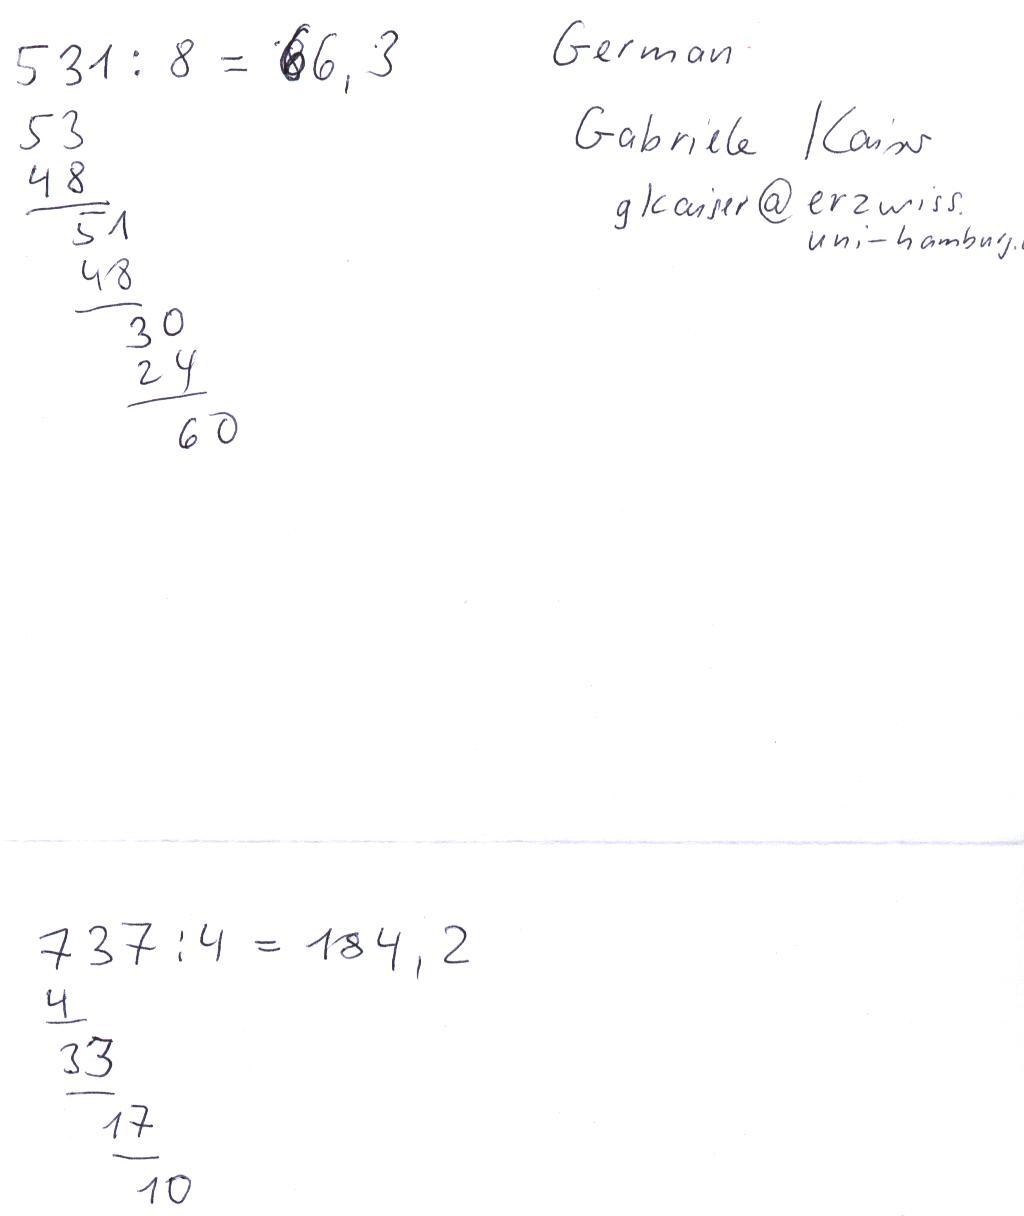 531 : 8 = 66,3
53
48
51
48
30
24
60
German
Gabriele Kaiser
gkaiser@erzwiss.
uni-hamburg.
737 : 4 = 184,2
4
33
17
10